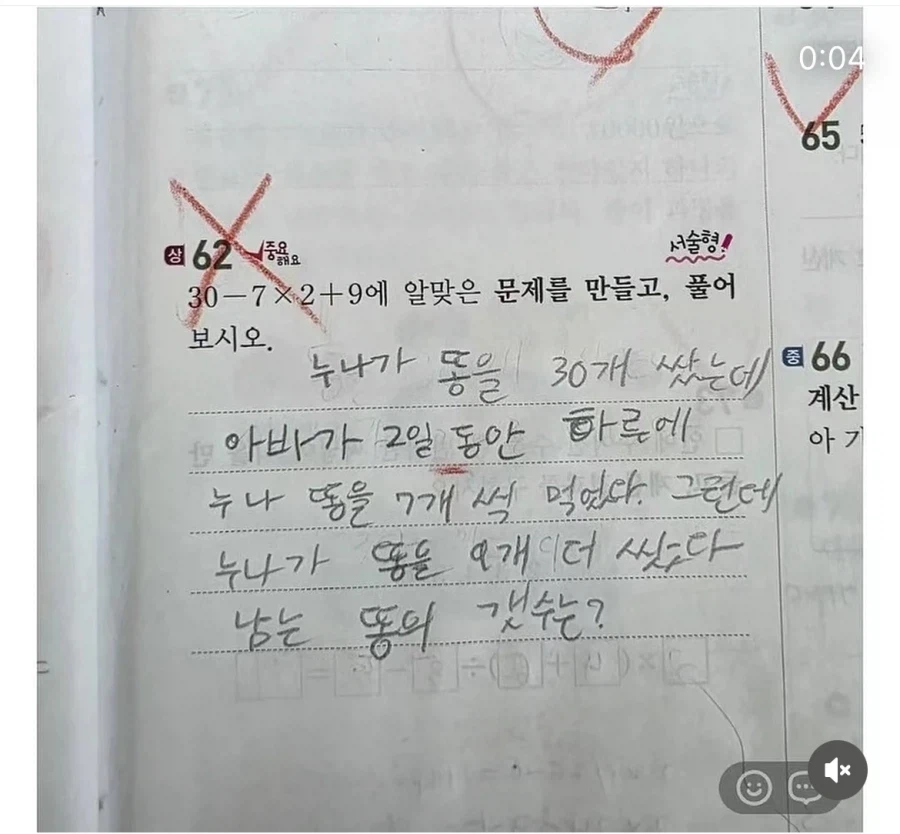 0:04
65
상 62 중요해요
서술형!
30－7×2＋9에 알맞은 문제를 만들고, 풀어
보시오.
누나가 똥을 30개 쌌는데
아바가 2일 동안 하루에
누나 똥을 7개 씩 먹었다. 그런데
누나가 똥을 9개 더 쌌다
남는 똥의 갯수는?
중 66
계산
아 기